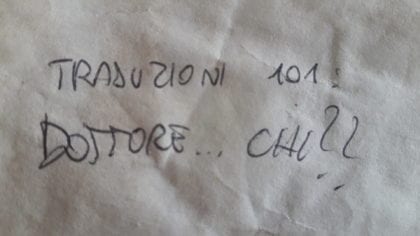 TRADUZIONI 101:
DOTTORE... CHI??